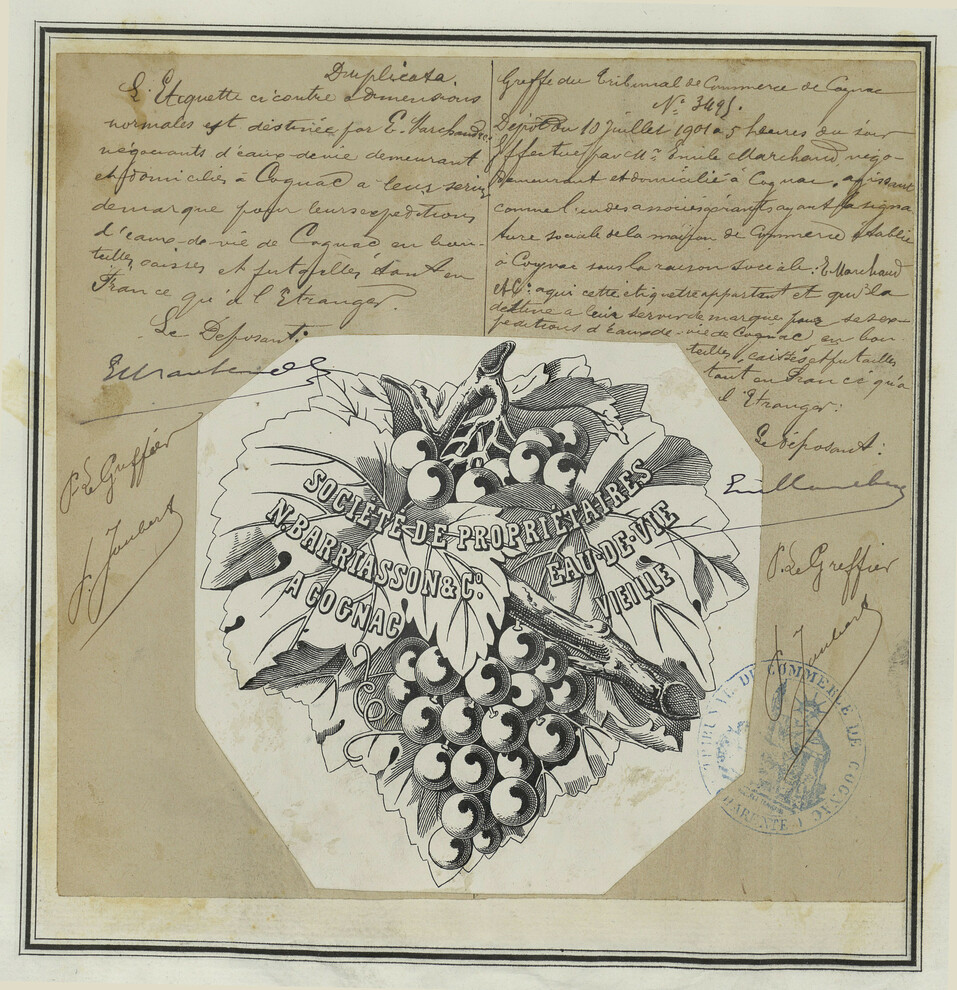 Duplicata.
L'Etiquette ci contre a dimensions
normales est destinée par E. Marchand & C.
négociants d'eaux-de-vie demeurant
et domiciliés à Cognac a leur servir
de marque pour leurs expeditions
d'eaux-de-vie de Cognac en bou-
teilles, caisses et futailles tant en
France qu'à l'Etranger
Le Déposant:
P. Le Greffier
J. Joubert
Greffe du Tribunal de Commerce de Cognac
N° 3495.
Dépôt du 10 Juillet 1901 à 5 heures du soir
Effectué par Mr. Emile Marchand négo-
demeurant et domicilié à Cognac, agissant
comme l'un des associés gérants ayant la signa
ture sociale de la maison de Commerce établie
à Cognac sous la raison sociale: E. Marchand
& C: a qui cette étiquette appartient et qui la
destine a leur servir de marque pour ses ex-
peditions d'Eaux-de-vie de Cognac en bou-
teilles, caisses et futailles
tant en France qu'à
l'Etranger:
Le déposant:
P. Le Greffier
J. Joubert
SOCIÉTÉ DE PROPRIÉTAIRES
N. BARRIASSON & Cº.
A COGNAC
EAU-DE-VIE
VIEILLE
TRIBUNAL DE COMMERCE DE COGNAC
CHARENTE